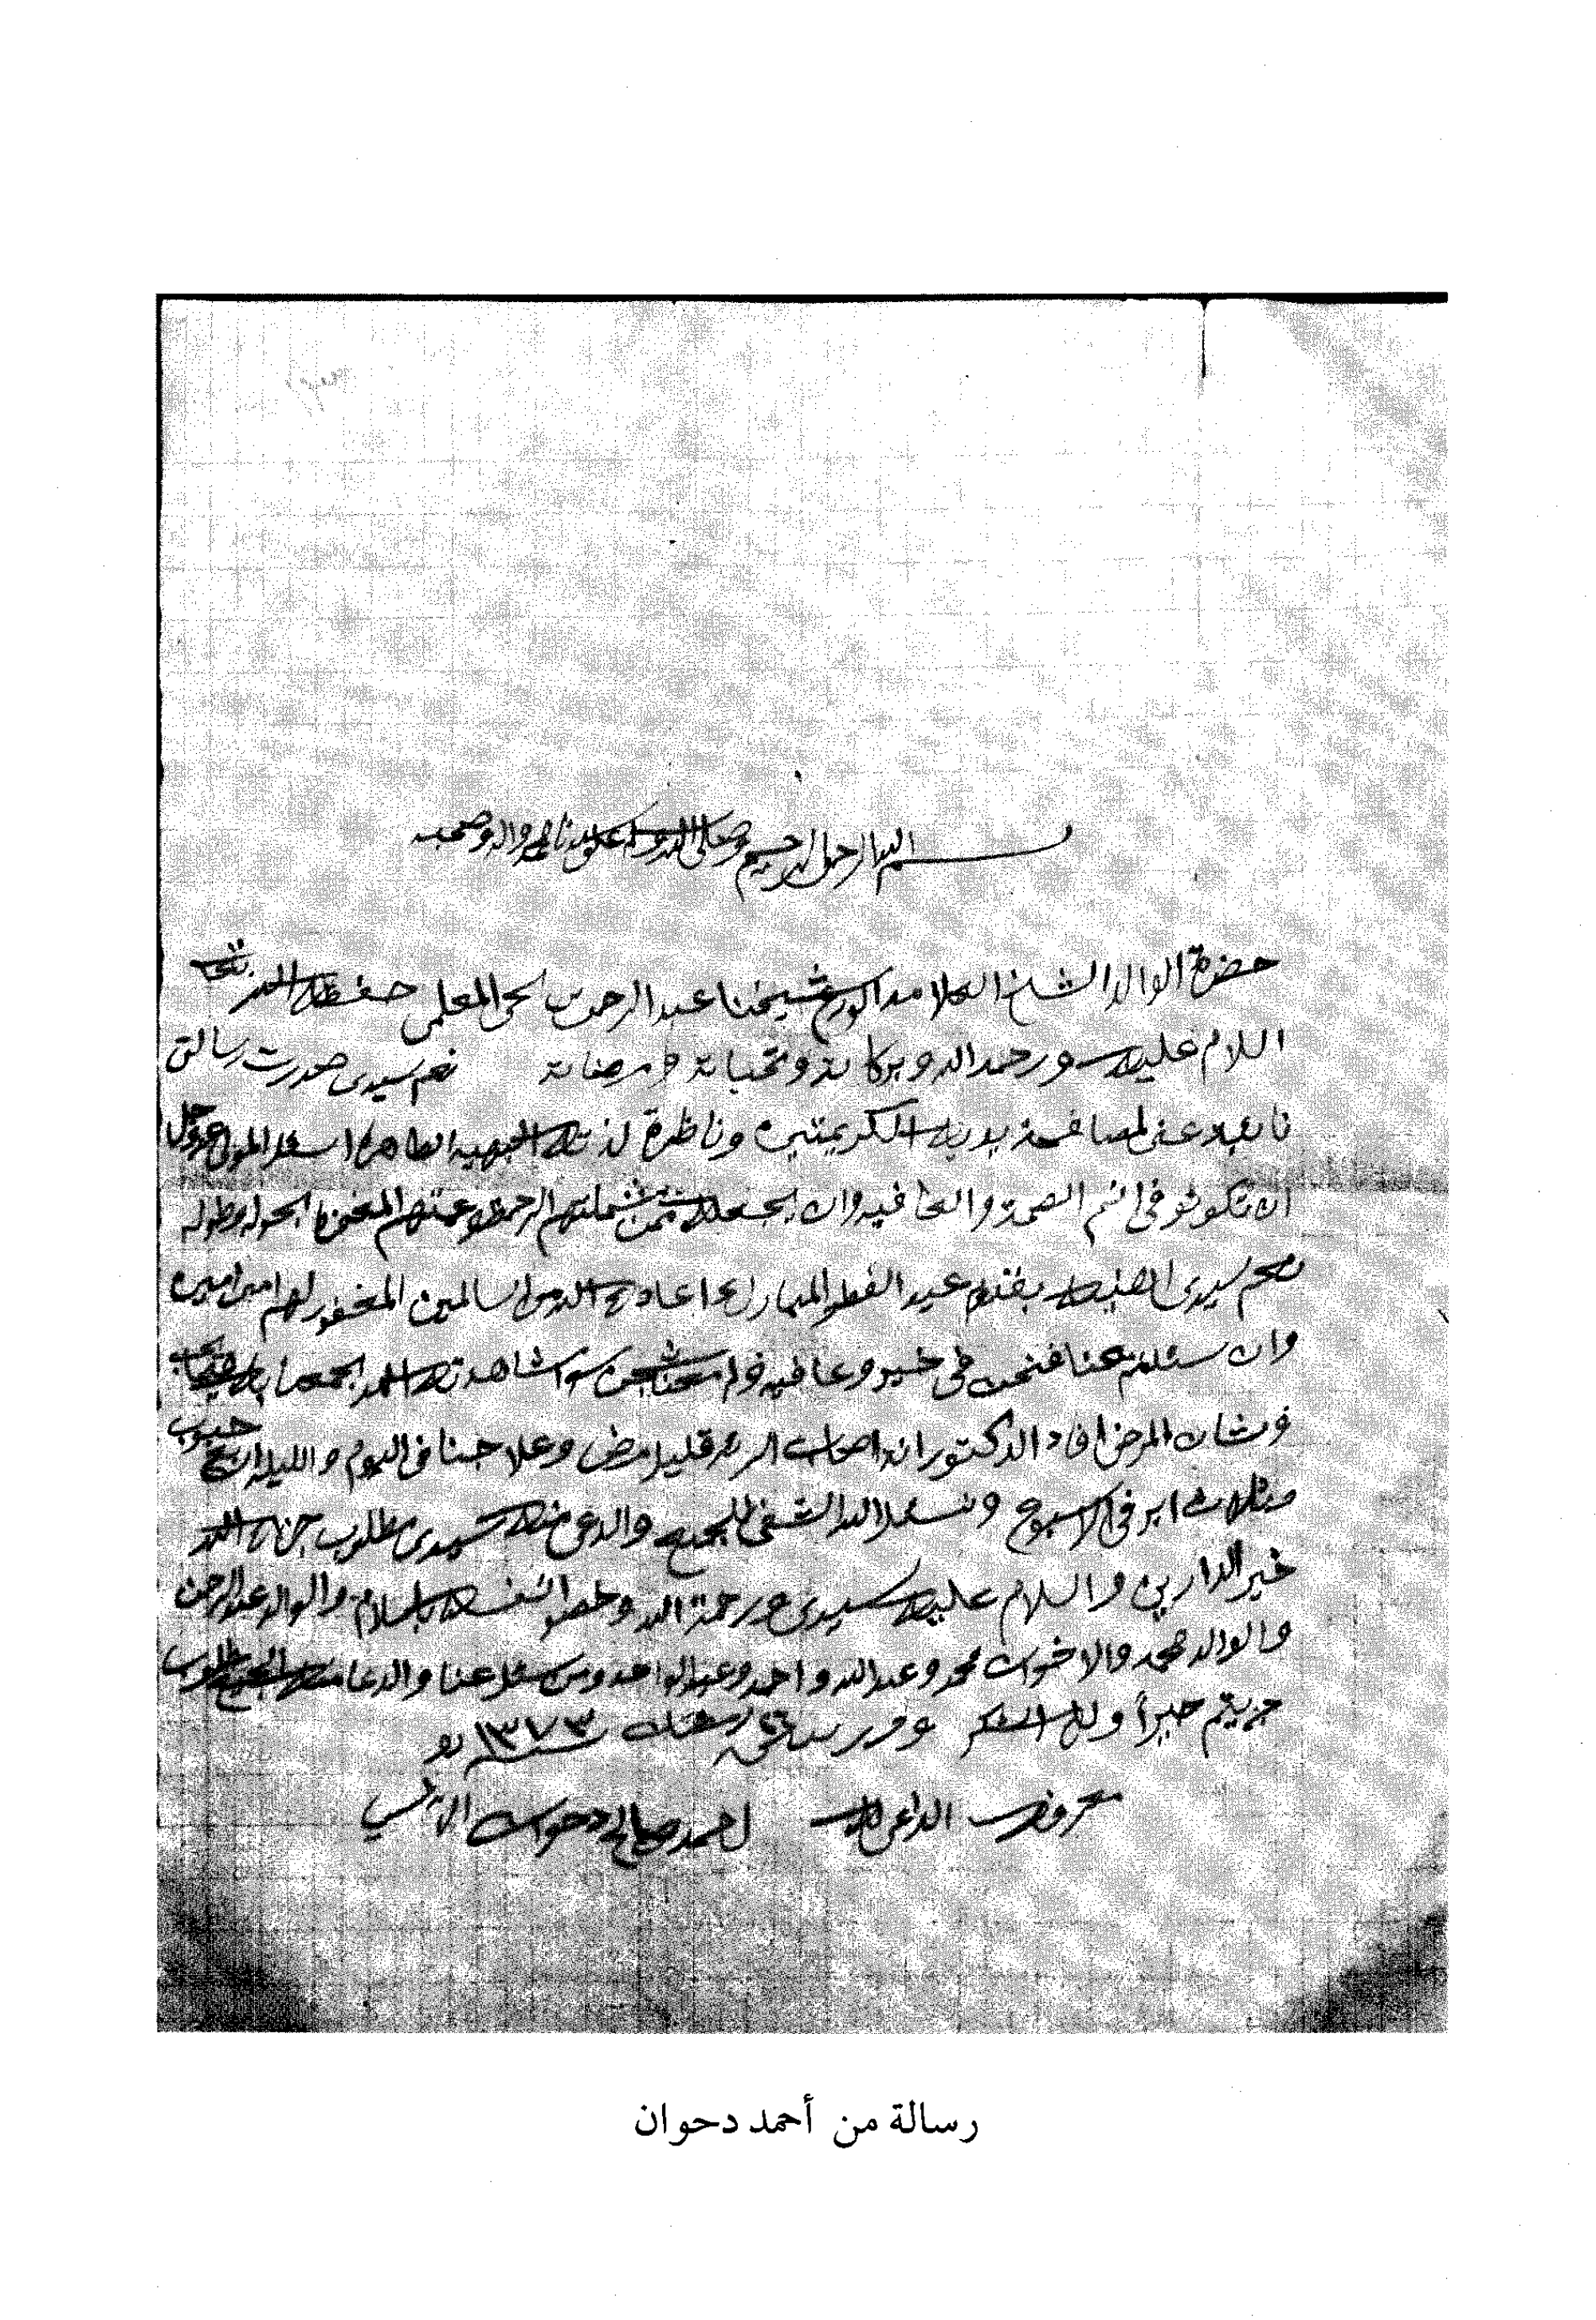 بسم الله الرحمن الرحيم وصلى الله على سيدنا محمد واله وصحبه
حضرة الوالد الشيخ العلامه شيخنا عبد الرحمن بن يحي المعلمي حفظك الله تعالى
السلام عليك ورحمة الله وبركاته وتحياته ومرضاته نعم سيدي صدرت رسالتي
نائبه عني لمصافحة يديك الكريمتين وناظرة لذتك البهيه الطاهرة اسئل المولى عزوجل
ان تكونو في اتم الصحة والعافيه وان يجعلك ممن شملتهم الرحمة وعمتهم المغفرة بحوله وطوله
نعم سيدي اهنيك بقدوم عيد الفطر المبارك اعاده الله من السالمين المغفور لهم امين امين
وان سئلتم عنا فنحن في خير وعافيه ولم سوا مشاهدتك الله يجمعنا بك
وشان المرض افاد الدكتور ان اصاب الرئه قليل مرض وعلاجنا في اليوم والليله اربع حبوب
وثلاث ابر في الاسبوع ونسئل الله الشفى للجميع والدعى منك سيدي مطلوب جزاك الله
خير الدارين والسلام عليك سيدي ورحمة الله وخصو انفسك بالسلام والوالد عبد الرحمن
والوالد محمد والاخوان محمد وعبد الله واحمد وعبد الواحد ومن سئل عنا والدعا منك مطلوب
جزيتم خيراً ولك الشكر سنة ١٣٧٣
معروف الداعي لك احمد صالح دحوان
رسالة من أحمد دحوان